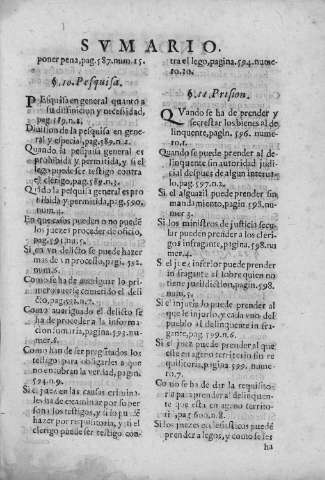 SVMARIO.
poner pena, pag. 587. num. 15.
§. 10. Pesquisa.
PEsquisa en general quanto a
su difinicion y necesidad,
pag. 589. n. 1.
Diuision de la pesquisa en gene-
ral y especial, pag. 589. n. 2.
Quando la pesquisa general es
prohibida y permitida, y si el
lego puede ser testigo contra
el clerigo, pag. 589. n. 3.
Quãdo la pesquisa general es pro
hibida y permitida, pag. 590.
num. 4.
En que casos pueden o no puedẽ
los juezes proceder de oficio,
pag. 591. n. 5.
Si en vn delicto se puede hazer
mas de vn processo, pag. 592.
num. 6.
Como se ha de aueriguar lo pri-
mero auerse cometido el deli
cto, pag. 592. n. 7.
Como aueriguado el delicto se
ha de proceder a la informa
cion sumaria, pagina. 593. nu-
mer. 8.
Como han de ser pregũtados los
testigos para obligarles a que
no encubran la verdad, pagin.
594. n. 9.
Si el juez en las causas crimina-
les ha de examinar por su per
sona los testigos, y si lo puede
hazer por requisitoria, y si el
clerigo puede ser testigo con-
tra el lego, pagina. 594. nume-
ro. 10.
§. 11. Prision.
QVando se ha de prender y
secrestar los bienes al de-
linquente, pagin. 596. nume-
ro. 1.
Quando se puede prender al de-
linquente sin autoridad judi-
cial despues de algun interua-
lo, pag. 597. n. 2.
Si el alguazil puede prender sin
mandamiento, pagin. 598. nu-
mer. 3.
Si los ministros de justicia secu-
lar pueden prender a los cleri-
gos infragante, pagina. 598. nu
mer. 4.
Si el juez inferior puede prender
in fragante al sobre quien no
tiene jurisdiction, pagin. 598.
num. 5.
Si el injuriado puede prender al
que le injurio, y cada vno del
pueblo al delinquente in fra-
gante, pag. 599. n. 6.
Si el juez puede prender al que
este en ageno territorio sin re
quisitoria, pagina 599. nume-
ro. 7.
Como se ha de dar la requisito-
ria para aprender al delinquen-
te que esta en ageno territo-
rio, pag. 600. n. 8.
Si los juezes ecclesiasticos puedẽ
prender a legos, y como se les
ha